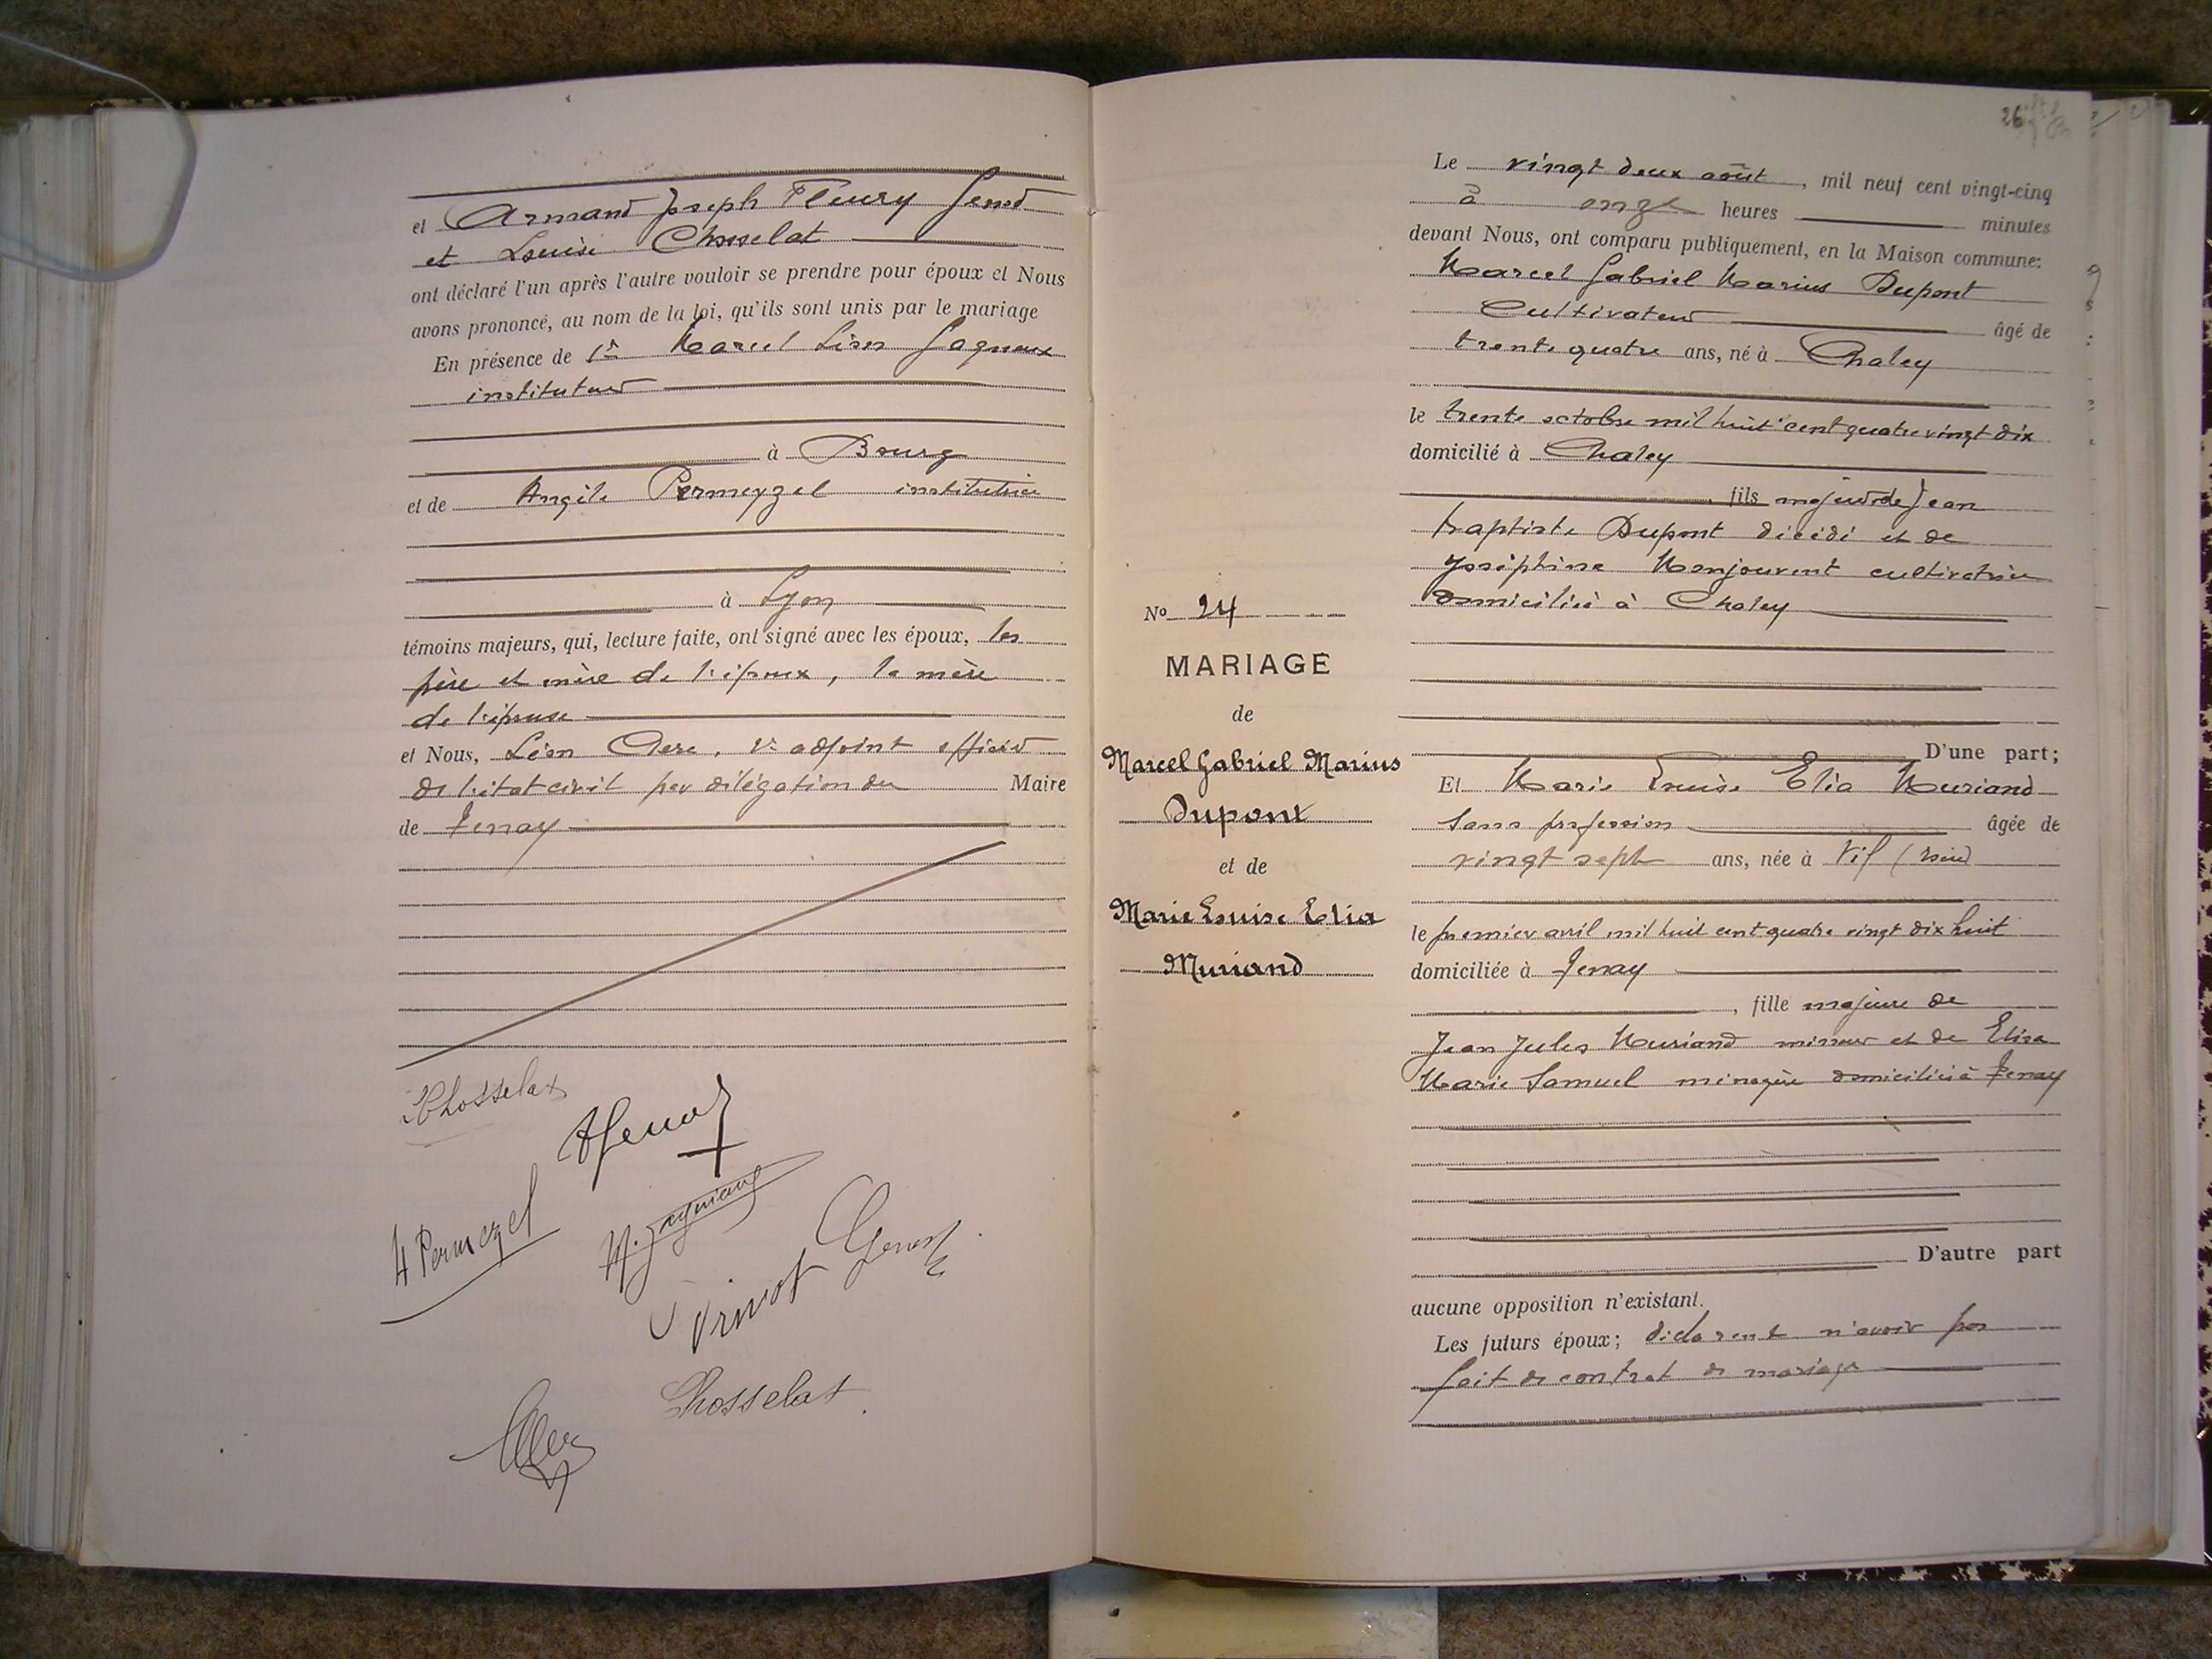 et Armand Joseph Fleury Genod
et Louise Chosselat
ont déclaré l'un après l'autre vouloir se prendre pour époux et Nous
avons prononcé, au nom de la loi, qu'ils sont unis par le mariage
En présence de Marcel
instituteur
à Bourg
et de Angèle Permeyzel institutrice
à Lyon
témoins majeurs, qui, lecture faite, ont signé avec les époux, les
père et mère de l'époux, la mère
de l'épouse
et Nous, Léon adjoint officier
de l'état civil par délégation du Maire
de Tenay
Chosselat
Permezel
Chosselat
26
No 24
MARIAGE
de
Marcel Gabriel Marius
Dupont
et de
Marie Louise Elia
Muriand
Le vingt deux août, mil neuf cent vingt-cinq
à onze heures minutes
devant Nous, ont comparu publiquement, en la Maison commune:
Marcel Gabriel Marius Dupont
Cultivateur âgé de
trente quatre ans, né à Chaley
le trente octobre mil huit cent quatre vingt dix
domicilié à Chaley
, fils majeur de Jean
baptiste Dupont décédé et de
Joséphine Monjouvent cultivatrice
domiciliée à Chaley
D'une part;
Et Marie Louise Elia Muriand
sans profession âgée de
vingt sept ans, née à Vif (Isère)
le premier avril mil huit cent quatre vingt dix huit
domiciliée à Tenay
, fille majeure de
Jean Jules Muriand mineur et de Elisa
Marie Samuel ménagère domiciliés à Tenay
D'autre part
aucune opposition n'existant.
Les futurs époux; déclarent n'avoir pas
fait de contrat de mariage